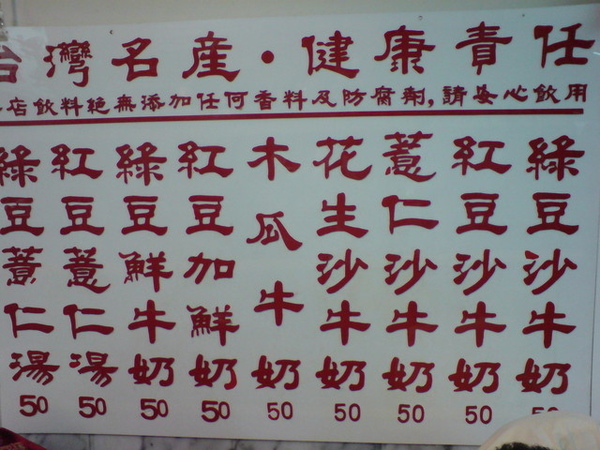 台灣名産・健康責任
店飲料絕無添加任何香料及防腐劑,請安心飲用
綠豆沙牛奶 50
紅豆沙牛奶 50
薏仁沙牛奶 50
花生沙牛奶 50
木瓜牛奶 50
紅豆加鮮奶 50
綠豆鮮牛奶 50
紅豆薏仁湯 50
綠豆薏仁湯 50